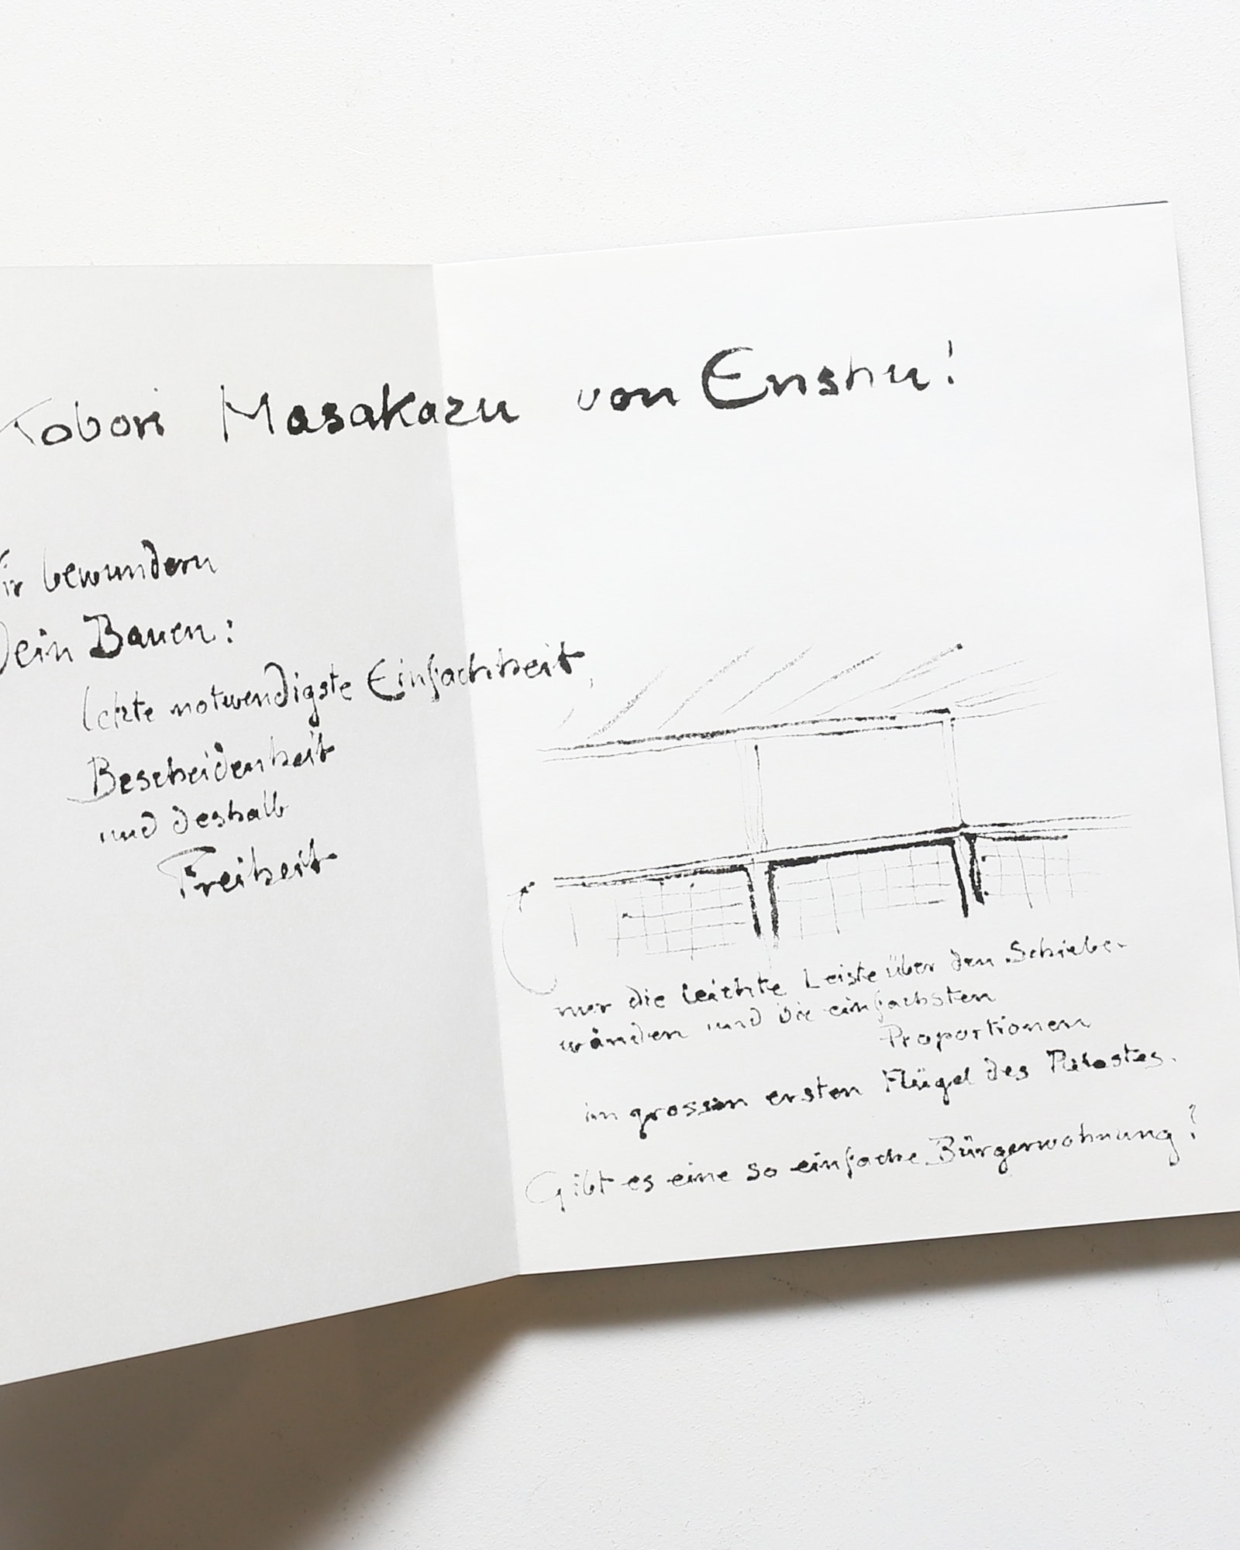 Kobori Masakazu von Enshu!
ir bewundern
Dein Bauen:
letzte notwendigste Einfachheit,
Bescheidenheit
und deshalb
Freiheit
nur die leichte Leiste über den Schiebe-
wänden und die einfachsten
Proportionen
im grossen ersten Flügel des Palastes.
Gibt es eine so einfache Bürgerwohnung?